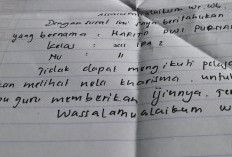 Assalamualaikum wr. wb
Dengan surat ini saya beritahukan
yang bernama : HARITH DWI
Kelas : XII IPA 2
NU : 11
Tidak dapat mengikuti pelaja
kan melihal nela kharisma. untuk
bu guru memberikan ijinnya.
Wassalamualaikum w